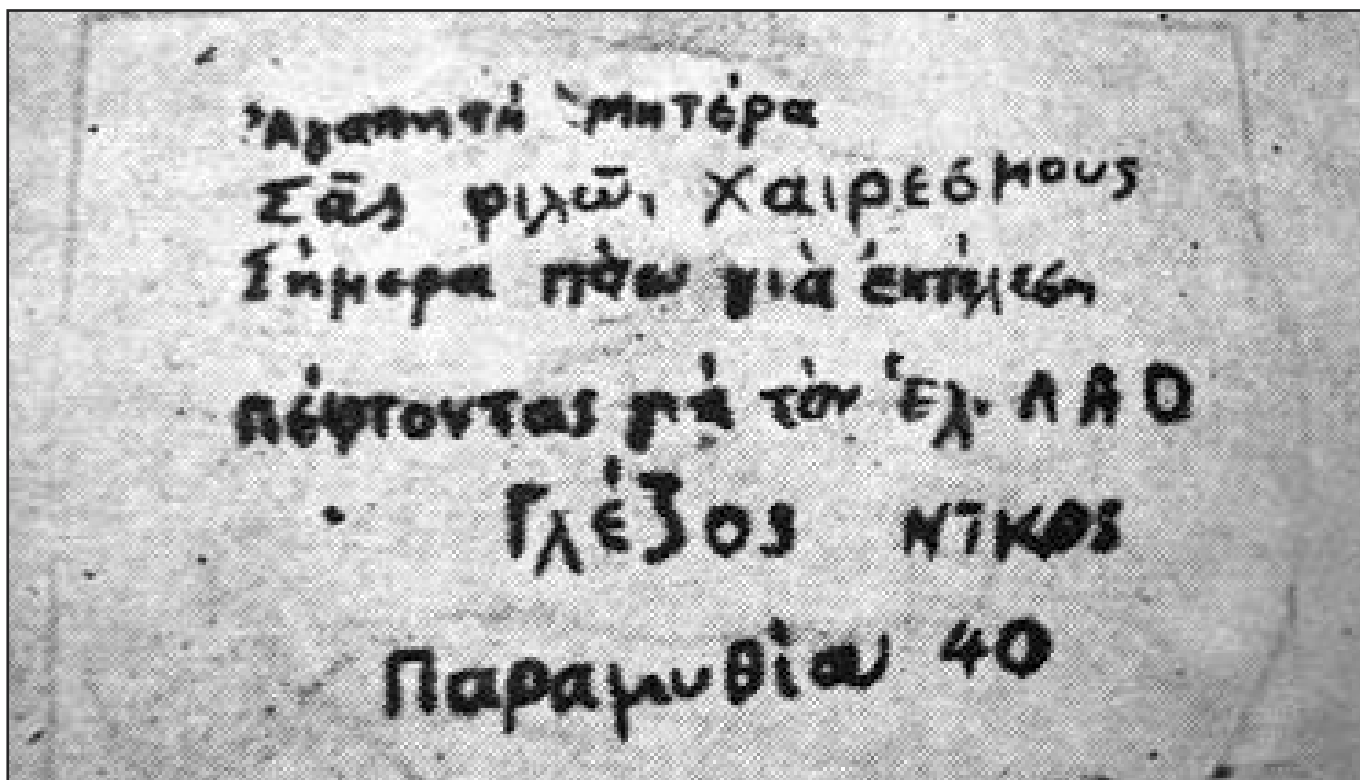 Ἀγαπητή Μητέρα
Σᾶς φιλῶ, Χαιρεσμους
Σήμερα πάω γιὰ ἐκτέλεση
πέφτοντας γιὰ τὸν Ἑλ. ΛΑΟ
Γλέζος Νῖκος
Παραμυθίας 40